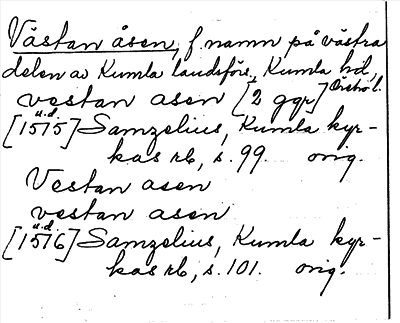 Västan åsen, f. namn på västra
delen av Kumla landsförs., Kumla hd,
Örebro l.
vestan asen [2 ggr]
u.d.
[1515] Samzelius, Kumla kyr-
kas rb, s. 99. orig.
Vestan asen
vestan asen
u.d.
[1516] Samzelius, Kumla kyr-
kas rb, s. 101. orig.